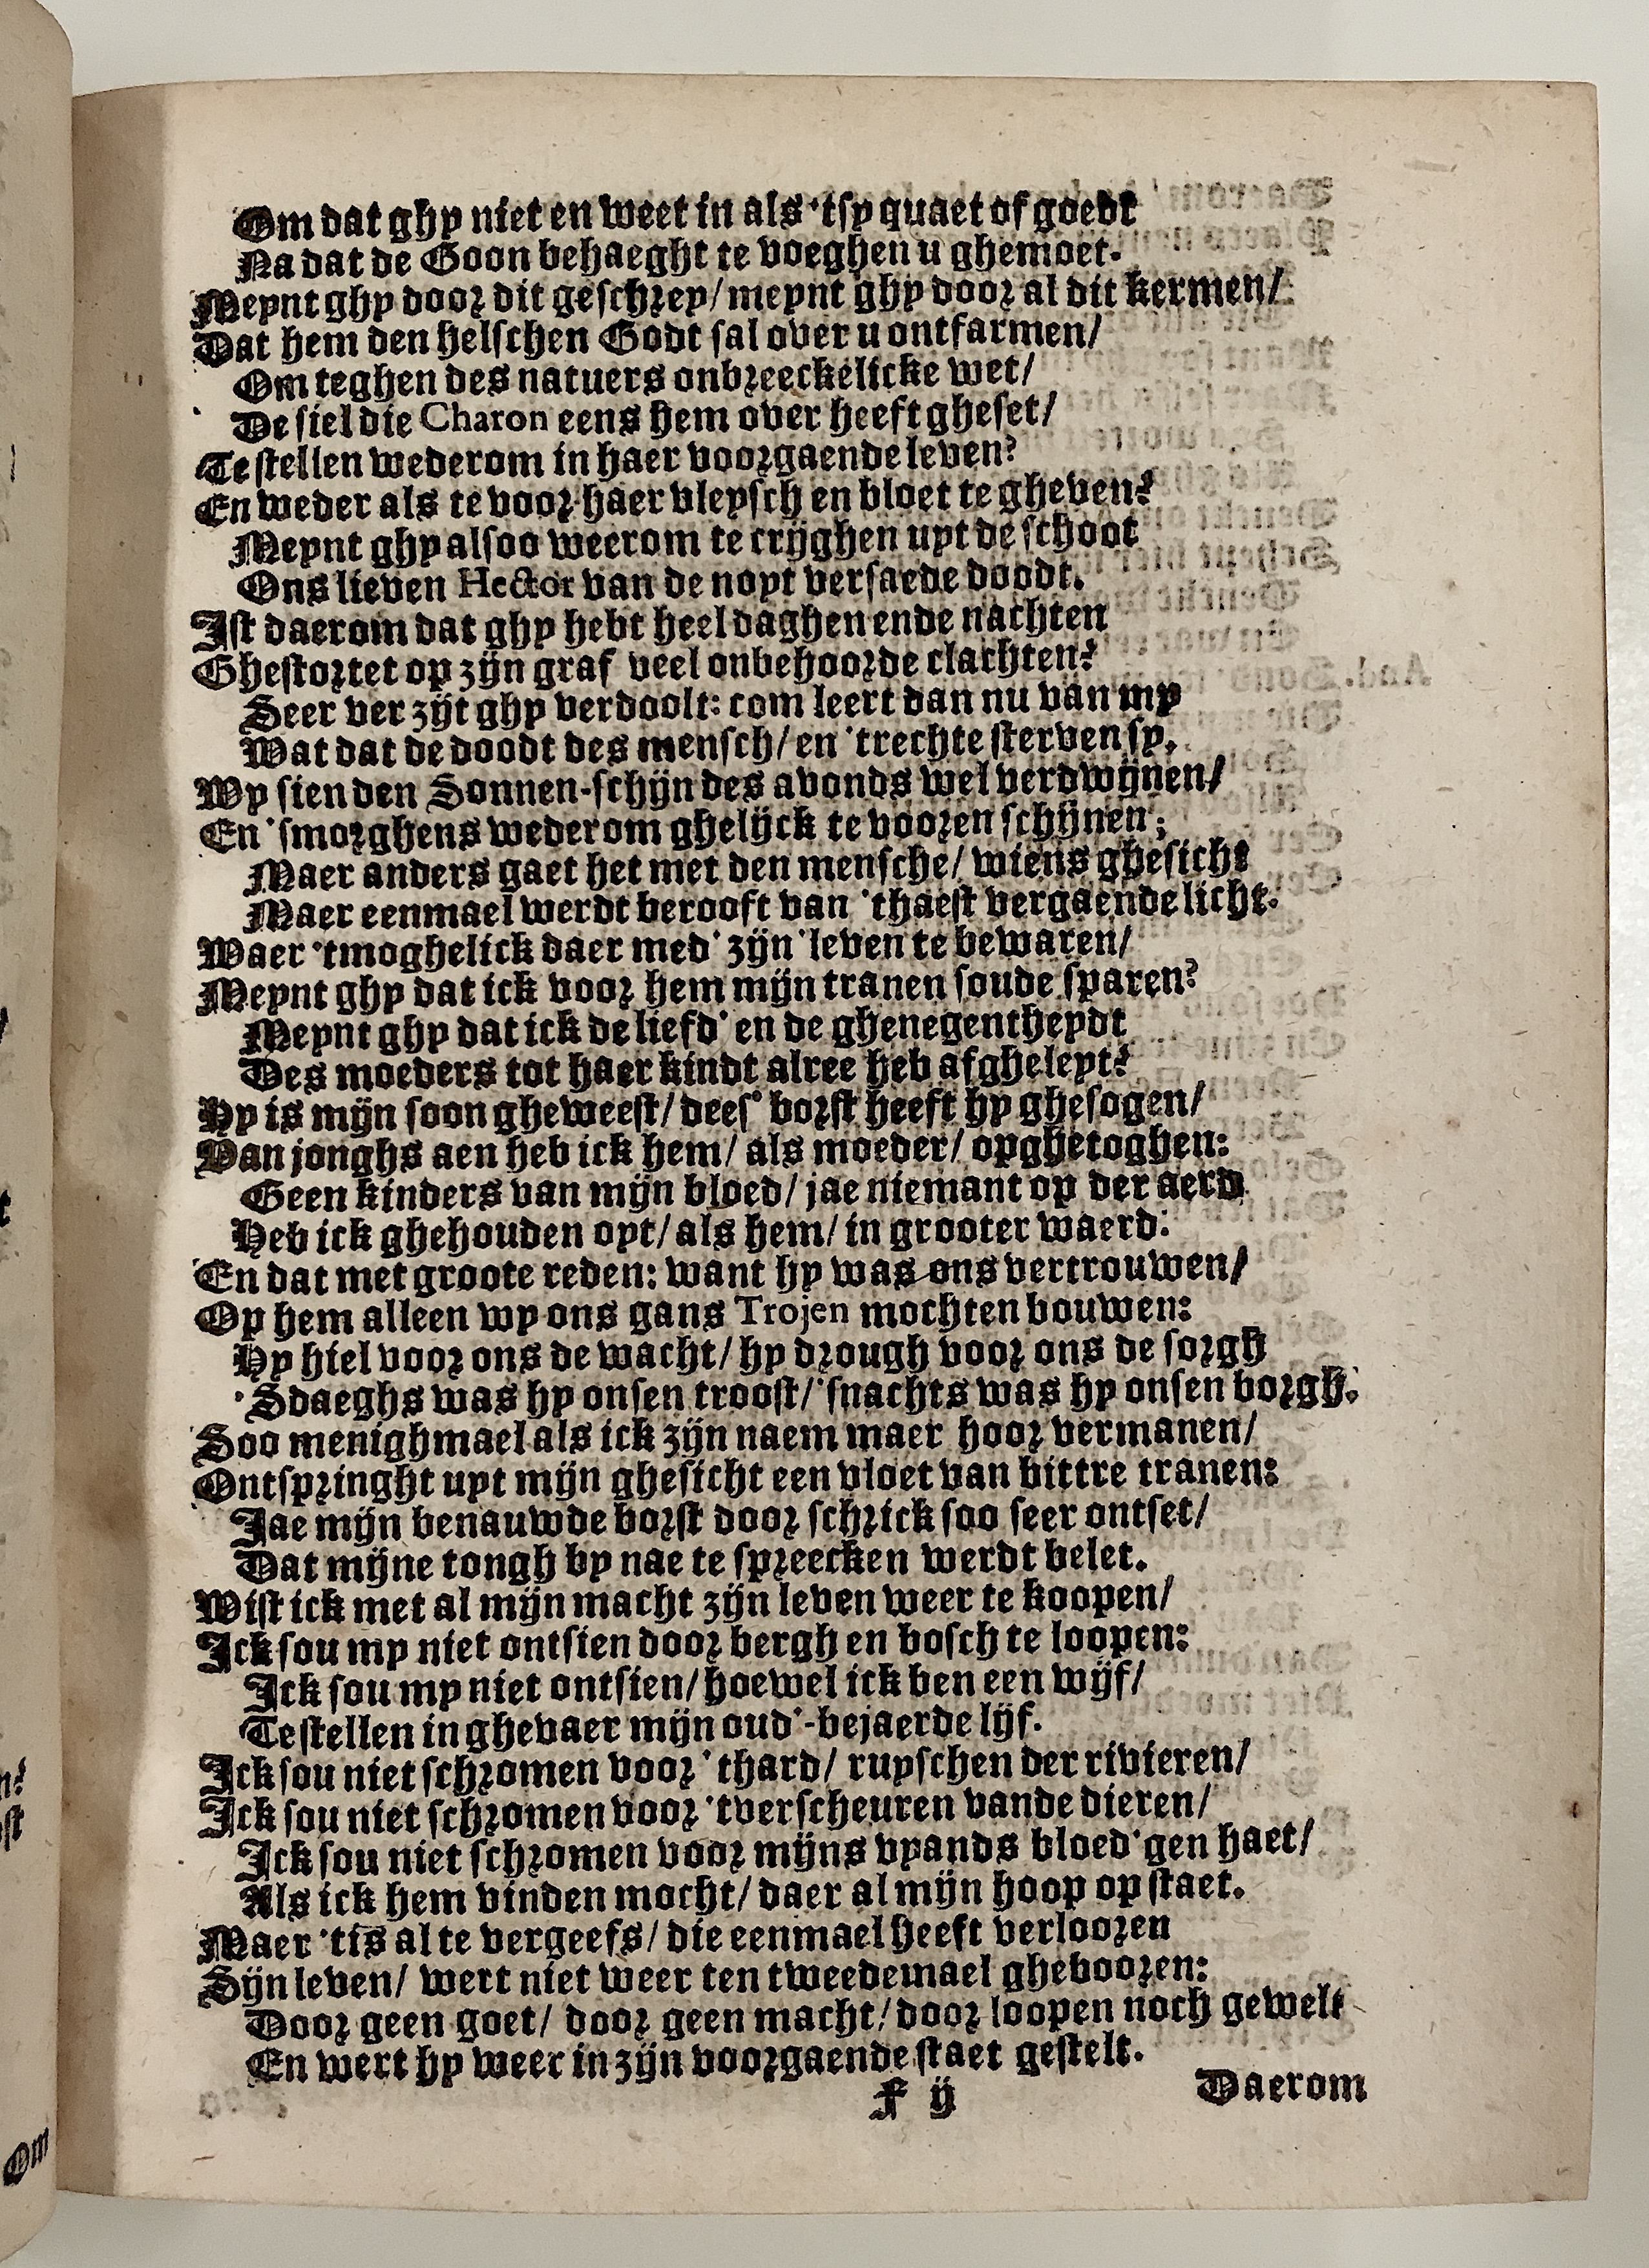 Om dat ghy niet en weet in als 'tsy quaet of goedt
Na dat de Goon behaeght te voeghen u ghemoet.
Meynt ghy door dit geschrey/ meynt ghy door al dit kermen/
Dat hem den helschen Godt sal over u ontfarmen/
Om teghen des natuers onbreeckelicke wet/
De siel die Charon eens hem over heeft gheset/
Te stellen wederom in haer voorgaende leven?
En weder als te voor haer vleysch en bloet te gheven?
Meynt ghy alsoo weerom te crijghen uyt de schoot
Ons lieven Hector van de noyt versaede doodt.
Ist daerom dat ghy hebt heel daghen ende nachten
Ghestortet op zijn graf veel onbehoorde clachten?
Seer ver zijt ghy verdoolt: com leert dan nu van my
Wat dat de doodt des mensch/ en 'trechte sterven sy.
Wy sien den Sonnen-schijn des avonds wel verdwijnen/
En 'smorghens wederom ghelijck te vooren schijnen;
Maer anders gaet het met den mensche/ wiens ghesicht
Maer eenmael werdt berooft van 'thaest vergaende licht.
Waer 'tmoghelick daer med' zijn leven te bewaren/
Meynt ghy dat ick voor hem mijn tranen soude sparen?
Meynt ghy dat ick de liefd' en de ghenegentheydt
Des moeders tot haer kindt alree heb afgheleyt?
Hy is mijn soon gheweest/ dees' borst heeft hy ghesogen/
Van jonghs aen heb ick hem/ als moeder/ opghetoghen:
Geen kinders van mijn bloed/ jae niemant op der aerd
Heb ick ghehouden oyt/ als hem/ in grooter waerd:
En dat met groote reden: want hy was ons vertrouwen/
Op hem alleen wy ons gans Trojen mochten bouwen:
Hy hiel voor ons de wacht/ hy drough voor ons de sorgh
'Sdaeghs was hy onsen troost/ 'snachts was hy onsen borgh.
Soo menighmael als ick zijn naem maer hoor vermanen/
Ontspringht uyt mijn ghesicht een vloet van bittre tranen:
Jae mijn benauwde borst door schrick soo seer ontset/
Dat mijne tongh by nae te spreecken werdt belet.
Wist ick met al mijn macht zijn leven weer te koopen/
Ick sou my niet ontsien door bergh en bosch te loopen:
Ick sou my niet ontsien/ hoewel ick ben een wijf/
Te stellen in ghevaer mijn oud'-bejaerde lijf.
Ick sou niet schromen voor 'thard/ ruyschen der rivieren/
Ick sou niet schromen voor 'tverscheuren vande dieren/
Ick sou niet schromen voor mijns vyands bloed'gen haet/
Als ick hem vinden mocht/ daer al mijn hoop op staet.
Maer 'tis al te vergeefs/ die eenmael heeft verlooren
Sijn leven/ wert niet weer ten tweedemael ghebooren:
Door geen goet/ door geen macht/ door loopen noch gewelt
En wert hy weer in zijn voorgaende staet gestelt.
F ij Daerom
Om